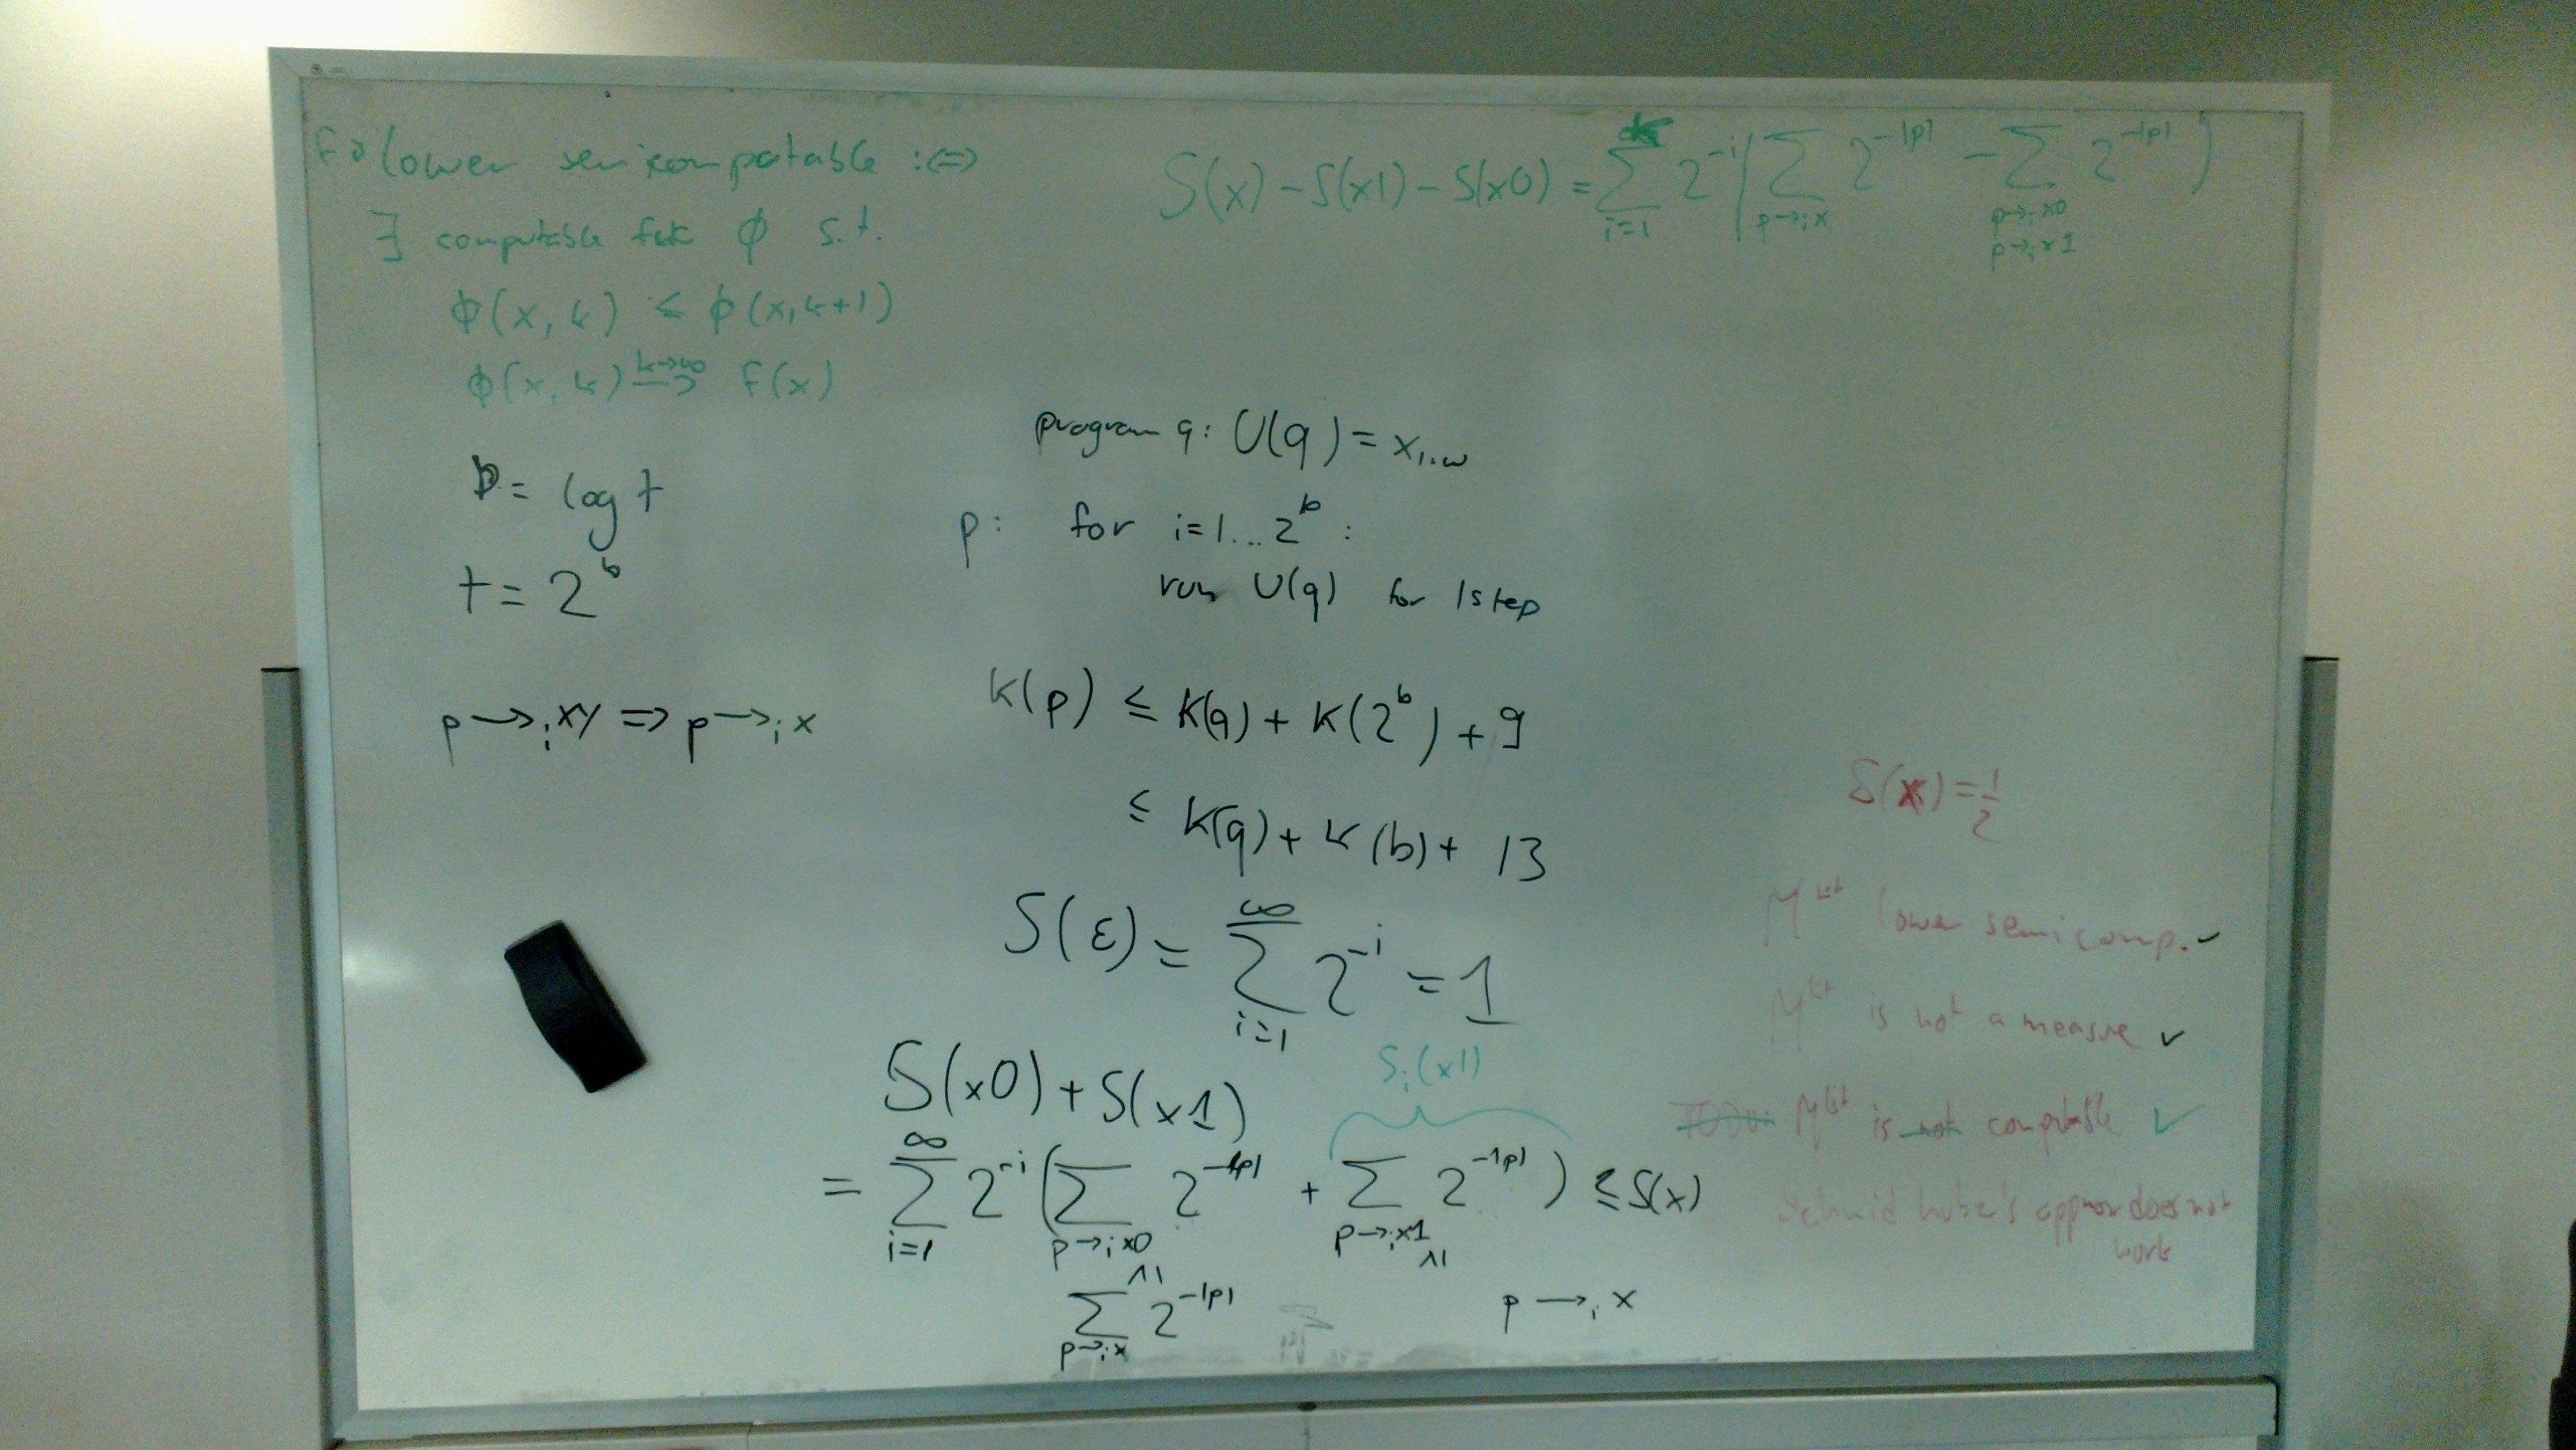 f is lower semicomputable :<=>
∃ computable fct ϕ s.t.
ϕ(x, k) ≤ ϕ(x, k+1)
ϕ(x, k) →^{k→∞} f(x)
S(x) - S(x1) - S(x0) = Σ_{i=1} 2^{-i} ( Σ_{p→_i x} 2^{-|p|} - Σ_{p→_i x0, p→_i x1} 2^{-|p|} )
b = log t
t = 2^b
p →_i xy => p →_i x
program q: U(q) = x_{1..ω}
p: for i=1...2^b :
run U(q) for 1 step
K(p) ≤ K(q) + K(2^b) + 9
≤ K(q) + K(b) + 13
S(ε) = Σ_{i=1}^{∞} 2^{-i} = 1
S(x0) + S(x1)
S_i(x1)
= Σ_{i=1}^{∞} 2^{-i} ( Σ_{p→_i x0} 2^{-|p|} + Σ_{p→_i x1} 2^{-|p|} ) ≤ S(x)
Σ_{p→_i x} 2^{-|p|}
p →_i x
S(x) = 1/2
M^{Kt} lower semicomp. ✓
M^{Kt} is not a measure ✓
TODO: M^{Kt} is not computable ✓
Schmidhuber's approx does not
work